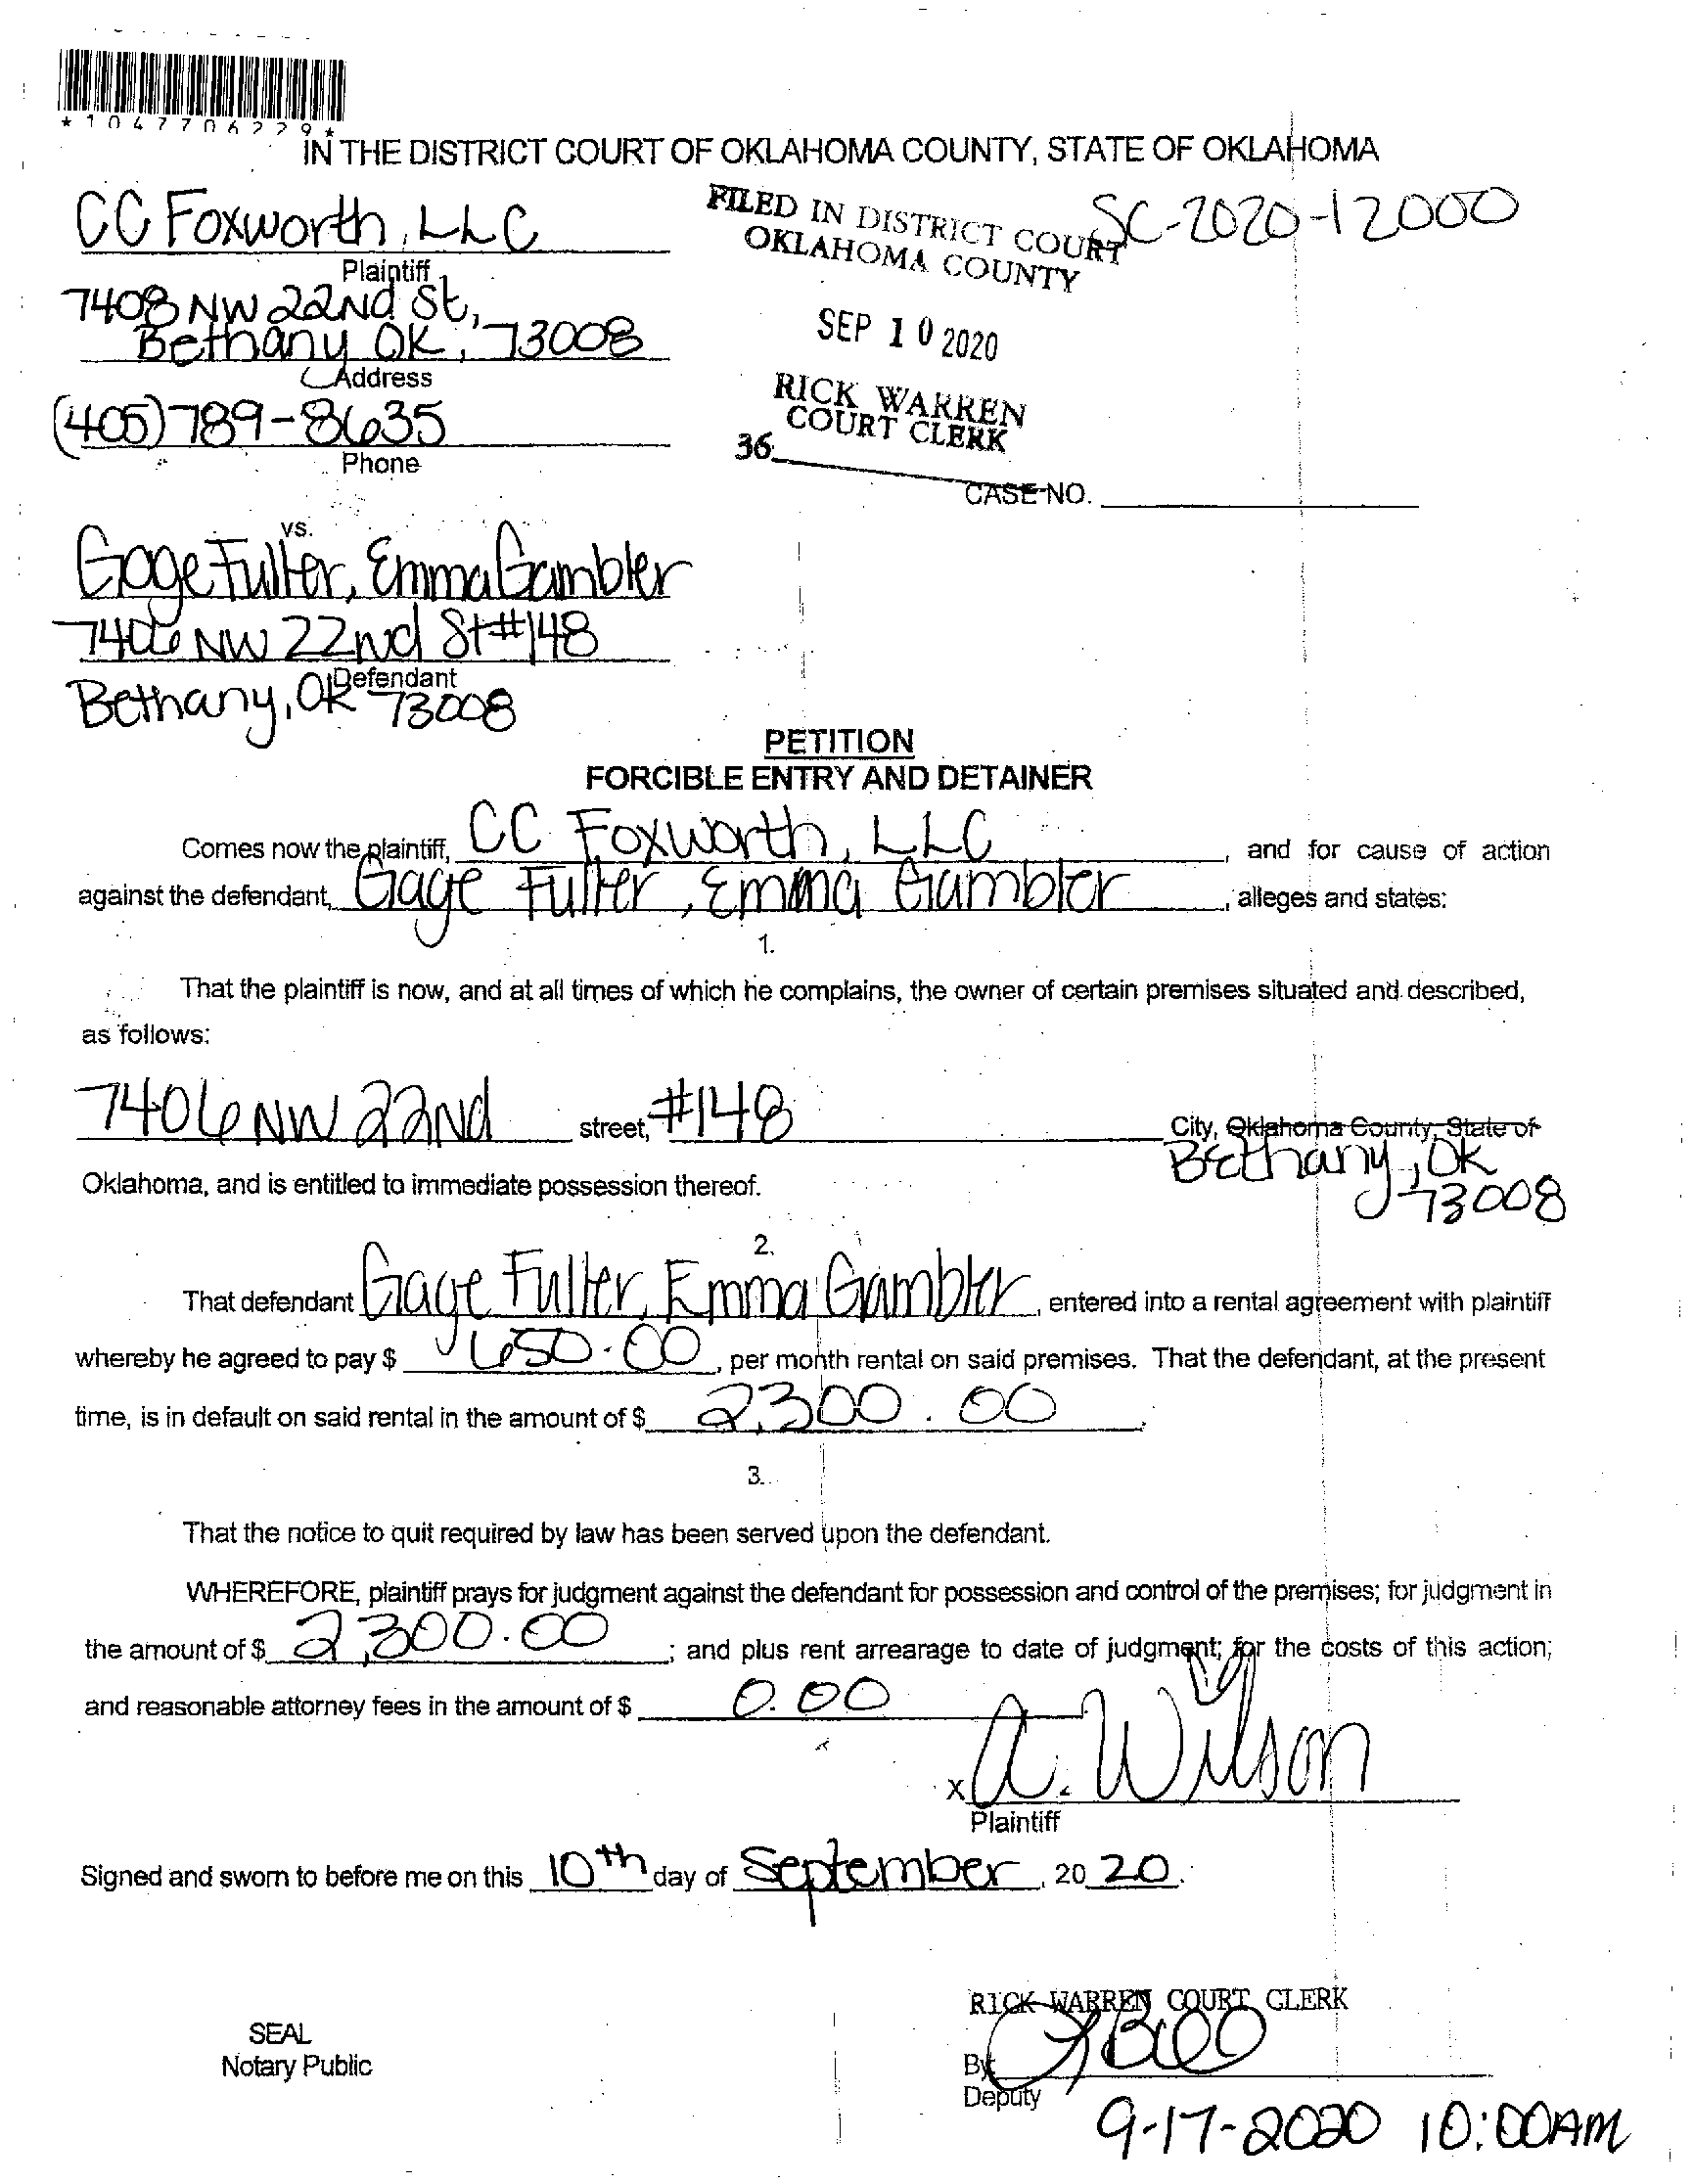 *1047706229*
IN THE DISTRICT COURT OF OKLAHOMA COUNTY, STATE OF OKLAHOMA
CC Foxworth, LLC
Plaintiff
7408 NW 22nd St,
Bethany OK, 73008
Address
(405)789-8635
Phone
FILED IN DISTRICT COURT
OKLAHOMA COUNTY
SC-2020-12000
SEP 10 2020
RICK WARREN
COURT CLERK
36
CASE NO.
vs.
Gage Fuller, Emma Gambler
7406 NW 22nd St #148
Defendant
Bethany, OK 73008
PETITION
FORCIBLE ENTRY AND DETAINER
Comes now the plaintiff, CC Foxworth, LLC, and for cause of action
against the defendant, Gage Fuller, Emma Gambler, alleges and states:
1.
That the plaintiff is now, and at all times of which he complains, the owner of certain premises situated and described,
as follows:
7406 NW 22nd street, #148 City, Oklahoma County, State of
Bethany, OK
73008
Oklahoma, and is entitled to immediate possession thereof.
2.
That defendant Gage Fuller, Emma Gambler, entered into a rental agreement with plaintiff
whereby he agreed to pay $ 650.00, per month rental on said premises. That the defendant, at the present
time, is in default on said rental in the amount of $ 2,300.00.
3.
That the notice to quit required by law has been served upon the defendant.
WHEREFORE, plaintiff prays for judgment against the defendant for possession and control of the premises; for judgment in
the amount of $ 2,300.00; and plus rent arrearage to date of judgment; for the costs of this action;
and reasonable attorney fees in the amount of $ 0.00
x A. Wilson
Plaintiff
Signed and sworn to before me on this 10th day of September, 20 20.
RICK WARREN COURT CLERK
SEAL
Notary Public
By:
Deputy
9-17-2020 10:00AM